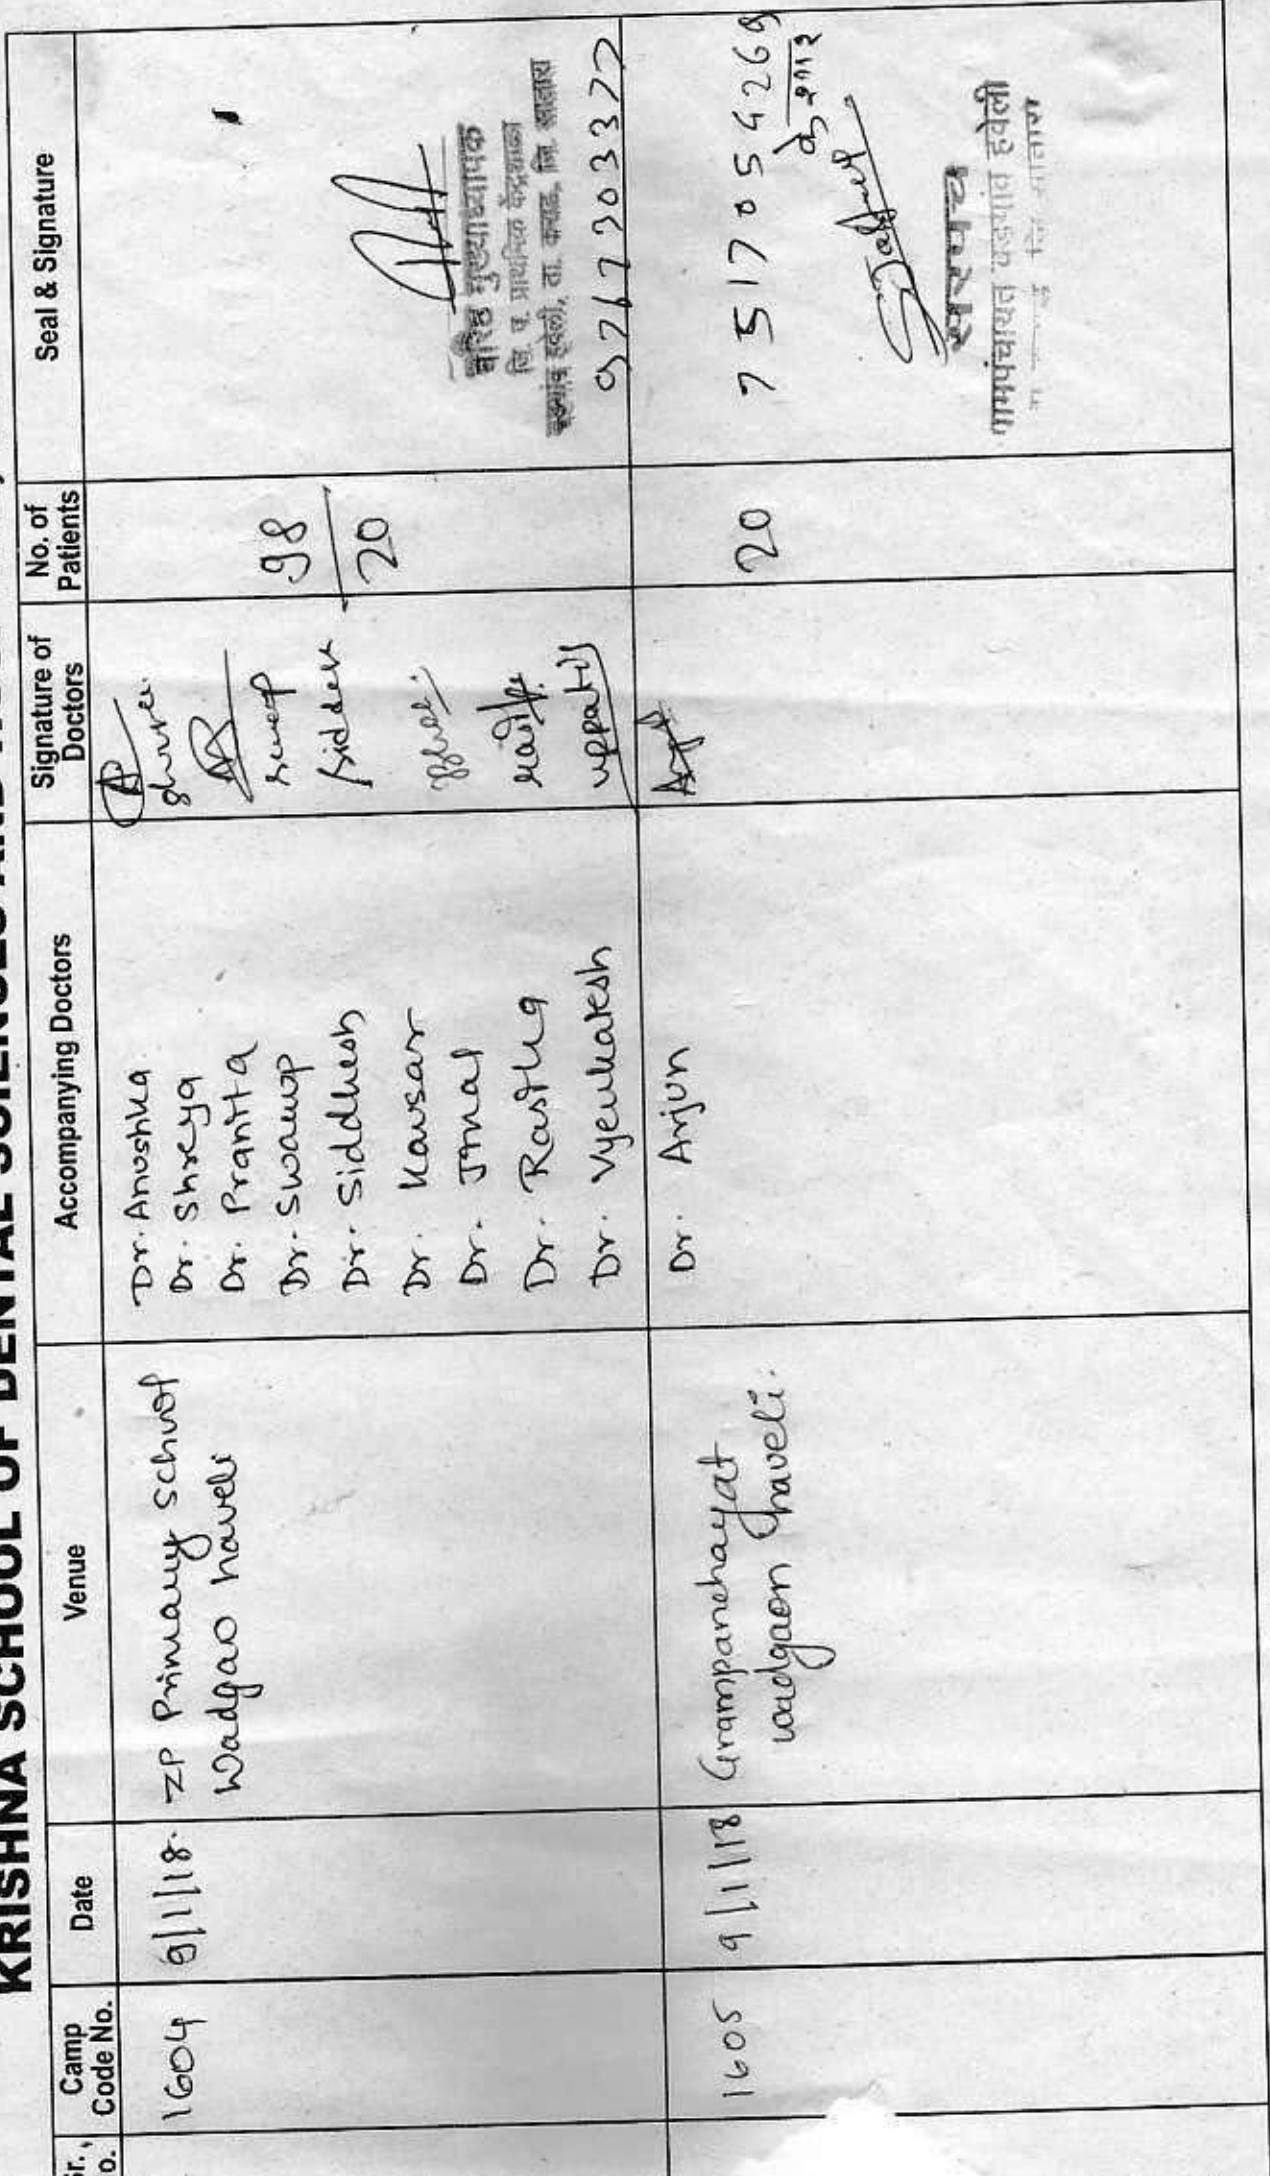 KRISHNA SCHOOL OF DENTAL SCIENCES AND
Camp Code No.
Date
Venue
Accompanying Doctors
Signature of Doctors
No. of Patients
Seal & Signature
1604
9/1/18.
ZP Primary School
Wadgao haveli
Dr. Anushka
Dr. Shreya
Dr. Pranita
Dr. Swarup
Dr. Siddhesh
Dr. Kausar
Dr. Jinal
Dr. Rastha
Dr. Vyenkatesh
98
20
वरिष्ठ मुख्याध्यापक
जि. प. प्राथमिक केंद्रशाळा
वडगांव हवेली, ता. कराड, जि. सातारा
9767303377
1605
9/1/18
Grampanchayat
wadgaon haveli.
Dr. Arjun
20
सरपंच